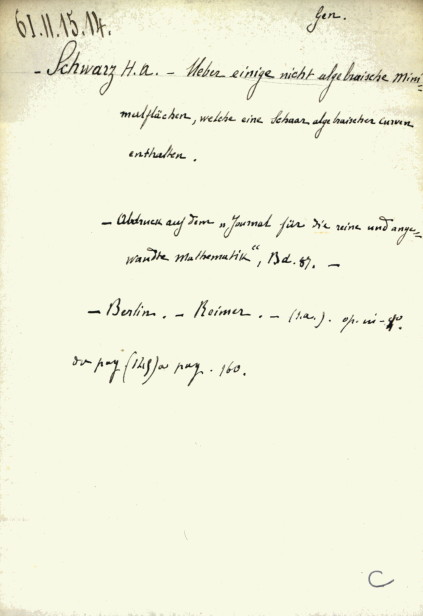 Gen.
61.II.15.14.
- Schwarz H. A. - Ueber einige nicht algebraische Mini=
malflächen, welche eine Schaar algebraischer Curven
enthalten.
- Abdruck aus dem „Journal für die reine und ange=
wandte Mathematik“, Bd. 87. -
- Berlin. - Reimer. - (s.a.). op. in-8°.
da pag (145) a pag. 160.
C